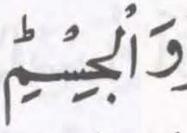 وَالْجِيْسِيْمِؕ